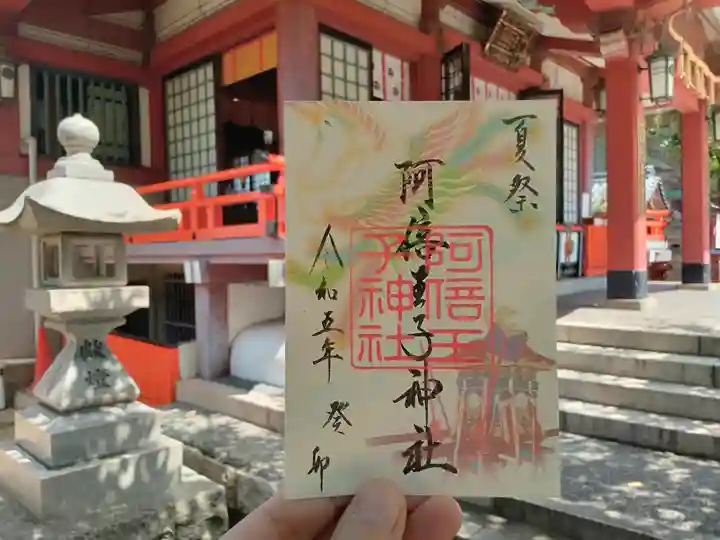 夏祭
阿倍王子神社
阿倍王
子神社
令和五年 癸卯
献燈